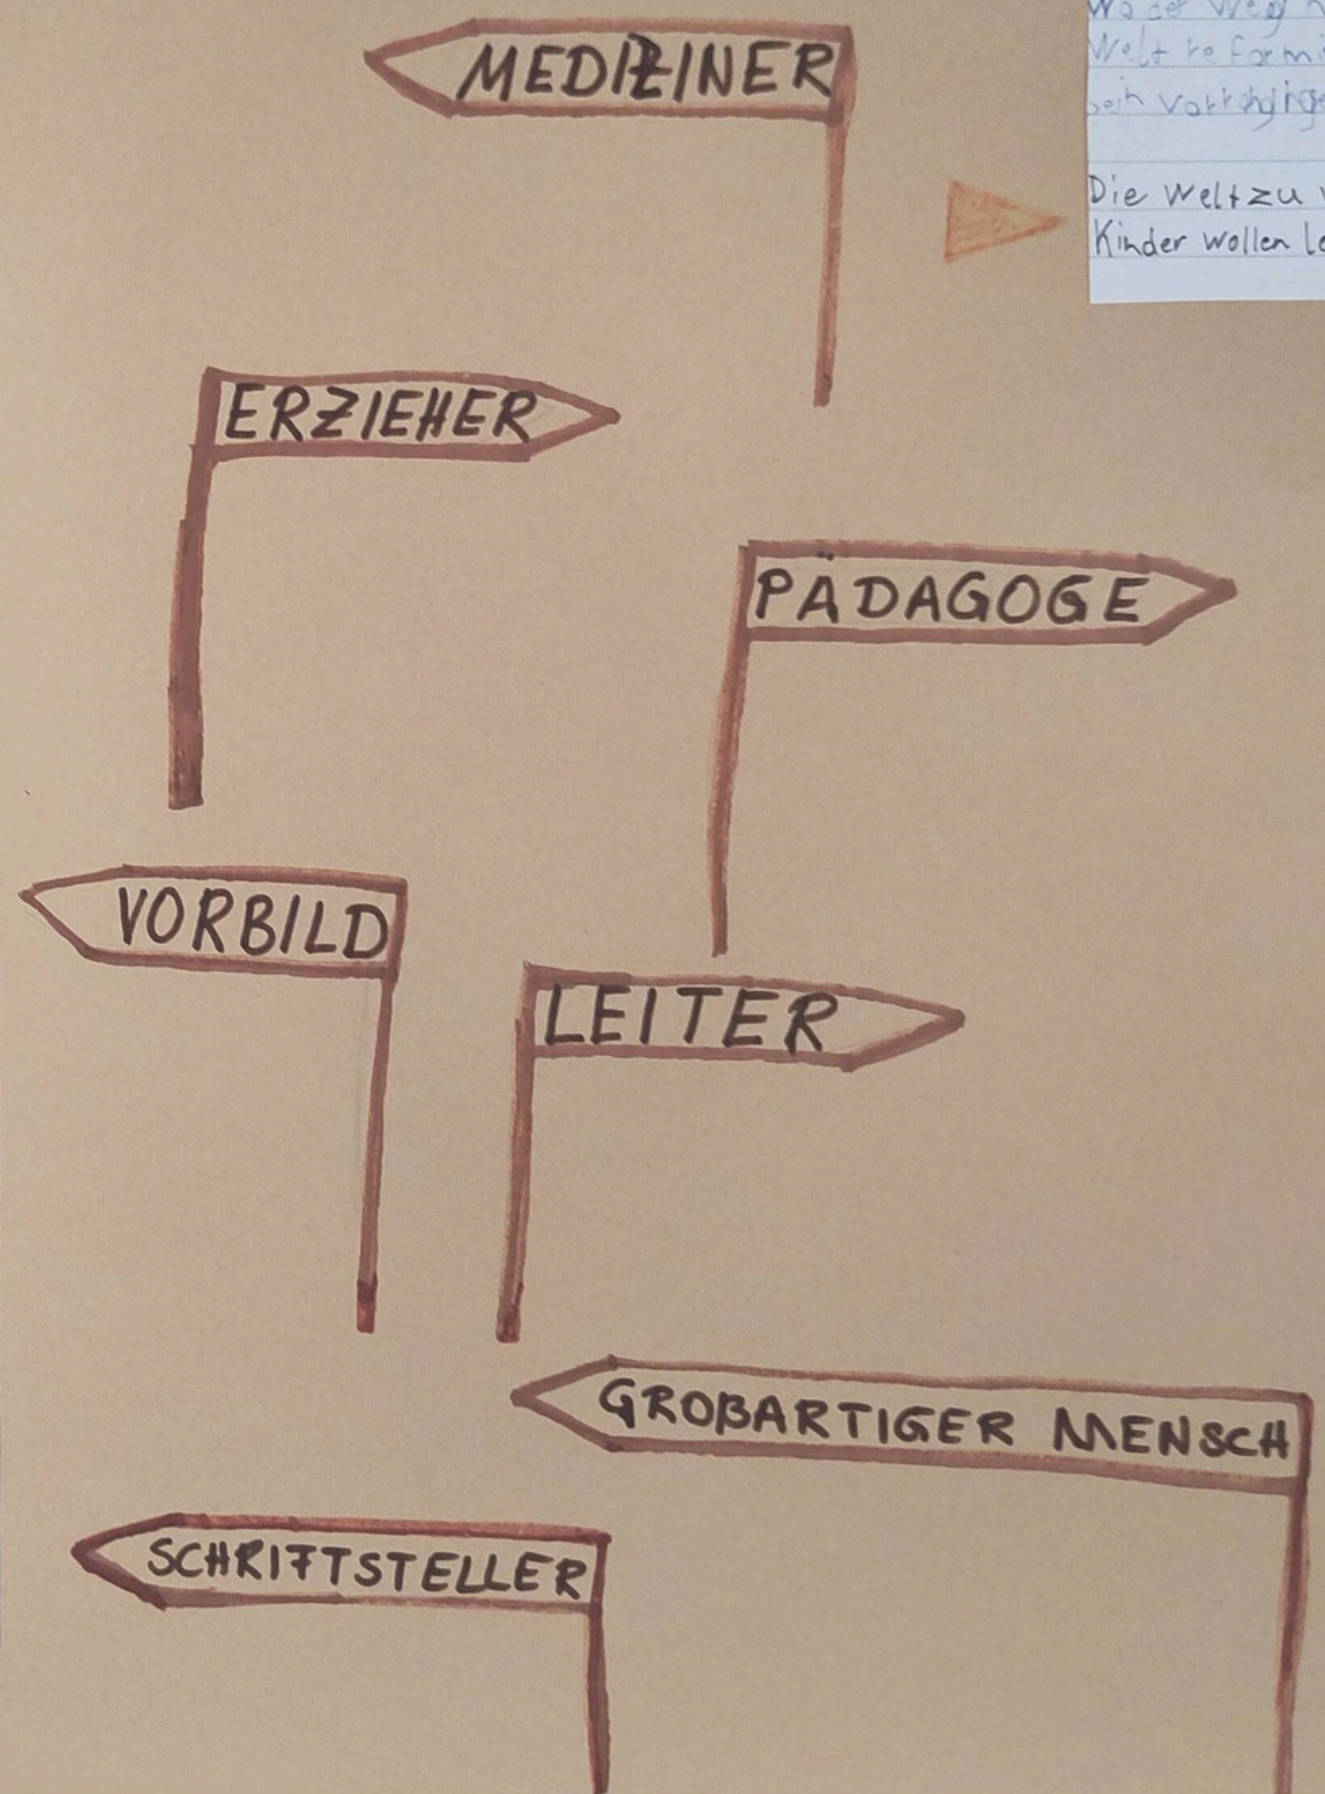 MEDIZINER
Wo der Weg
Welt
sein
Die Welt zu
Kinder wollen
ERZIEHER
PÄDAGOGE
VORBILD
LEITER
GROßARTIGER MENSCH
SCHRIFTSTELLER